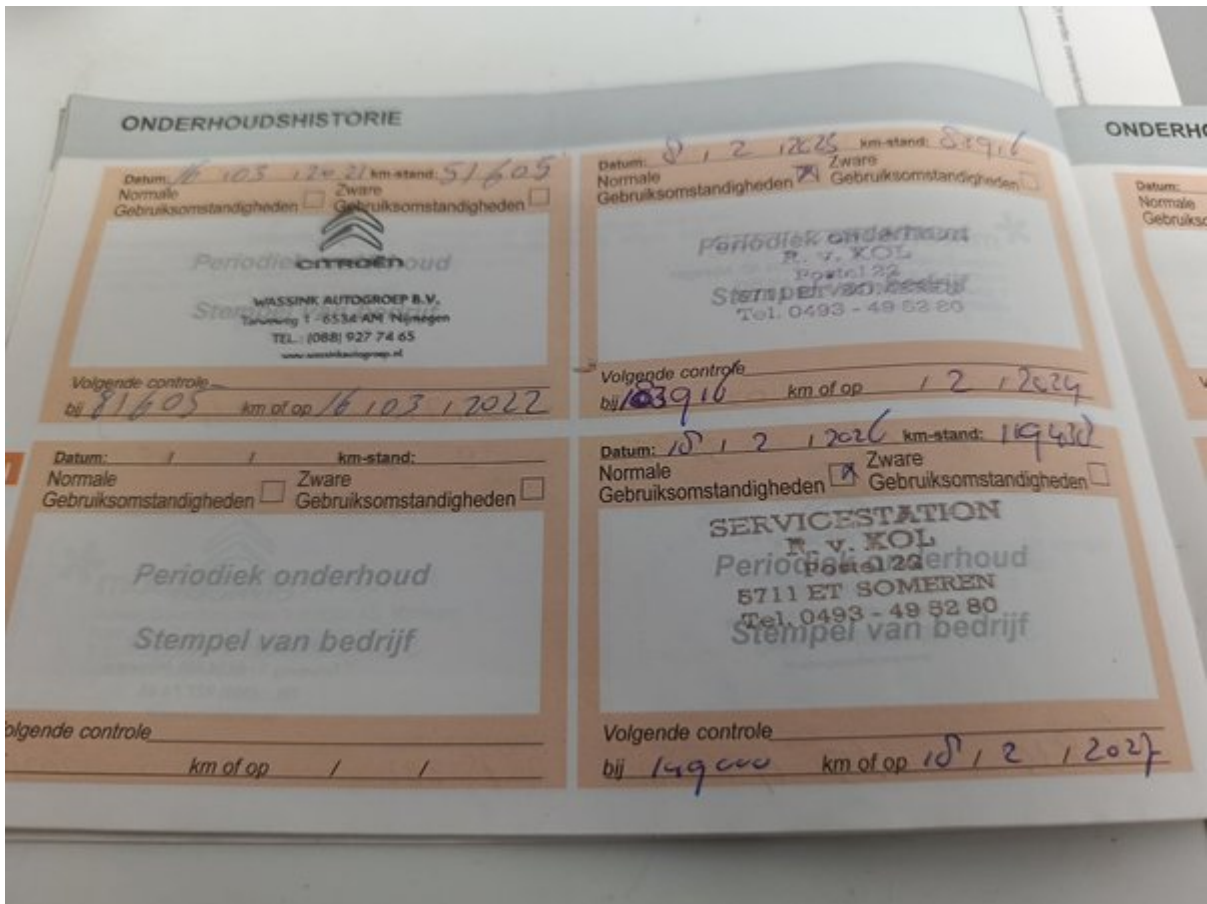 ONDERHOUDSHISTORIE
Datum: 16 / 03 / 2021 km-stand: 51605
Normale Gebruiksomstandigheden Zware Gebruiksomstandigheden
Periodiek onderhoud
CITROËN
Stempel van bedrijf
WASSINK AUTOGROEP B.V.
Tarweweg 1 - 6534 AM Nijmegen
TEL.: (088) 927 74 65
www.wassinkautogroep.nl
Volgende controle
bij 81605 km of op 16 / 03 / 2022
Datum: 8 / 2 / km-stand:
Normale Gebruiksomstandigheden Zware Gebruiksomstandigheden
Periodiek onderhoud
R. v. KOL
Postel 22
Stempel van bedrijf
Tel. 0493 - 49 52 80
Volgende controle
bij km of op / 2 / 2024
Datum: / / km-stand:
Normale Gebruiksomstandigheden Zware Gebruiksomstandigheden
Periodiek onderhoud
Stempel van bedrijf
Volgende controle
km of op / /
Datum: 18 / 2 / 2026 km-stand:
Normale Gebruiksomstandigheden Zware Gebruiksomstandigheden
SERVICESTATION
R. v. KOL
Periodiek onderhoud
Postel 22
5711 ET SOMEREN
Tel. 0493 - 49 52 80
Stempel van bedrijf
Volgende controle
bij 149000 km of op 18 / 2 / 2027
ONDERHO
Datum:
Normale
Gebruikso